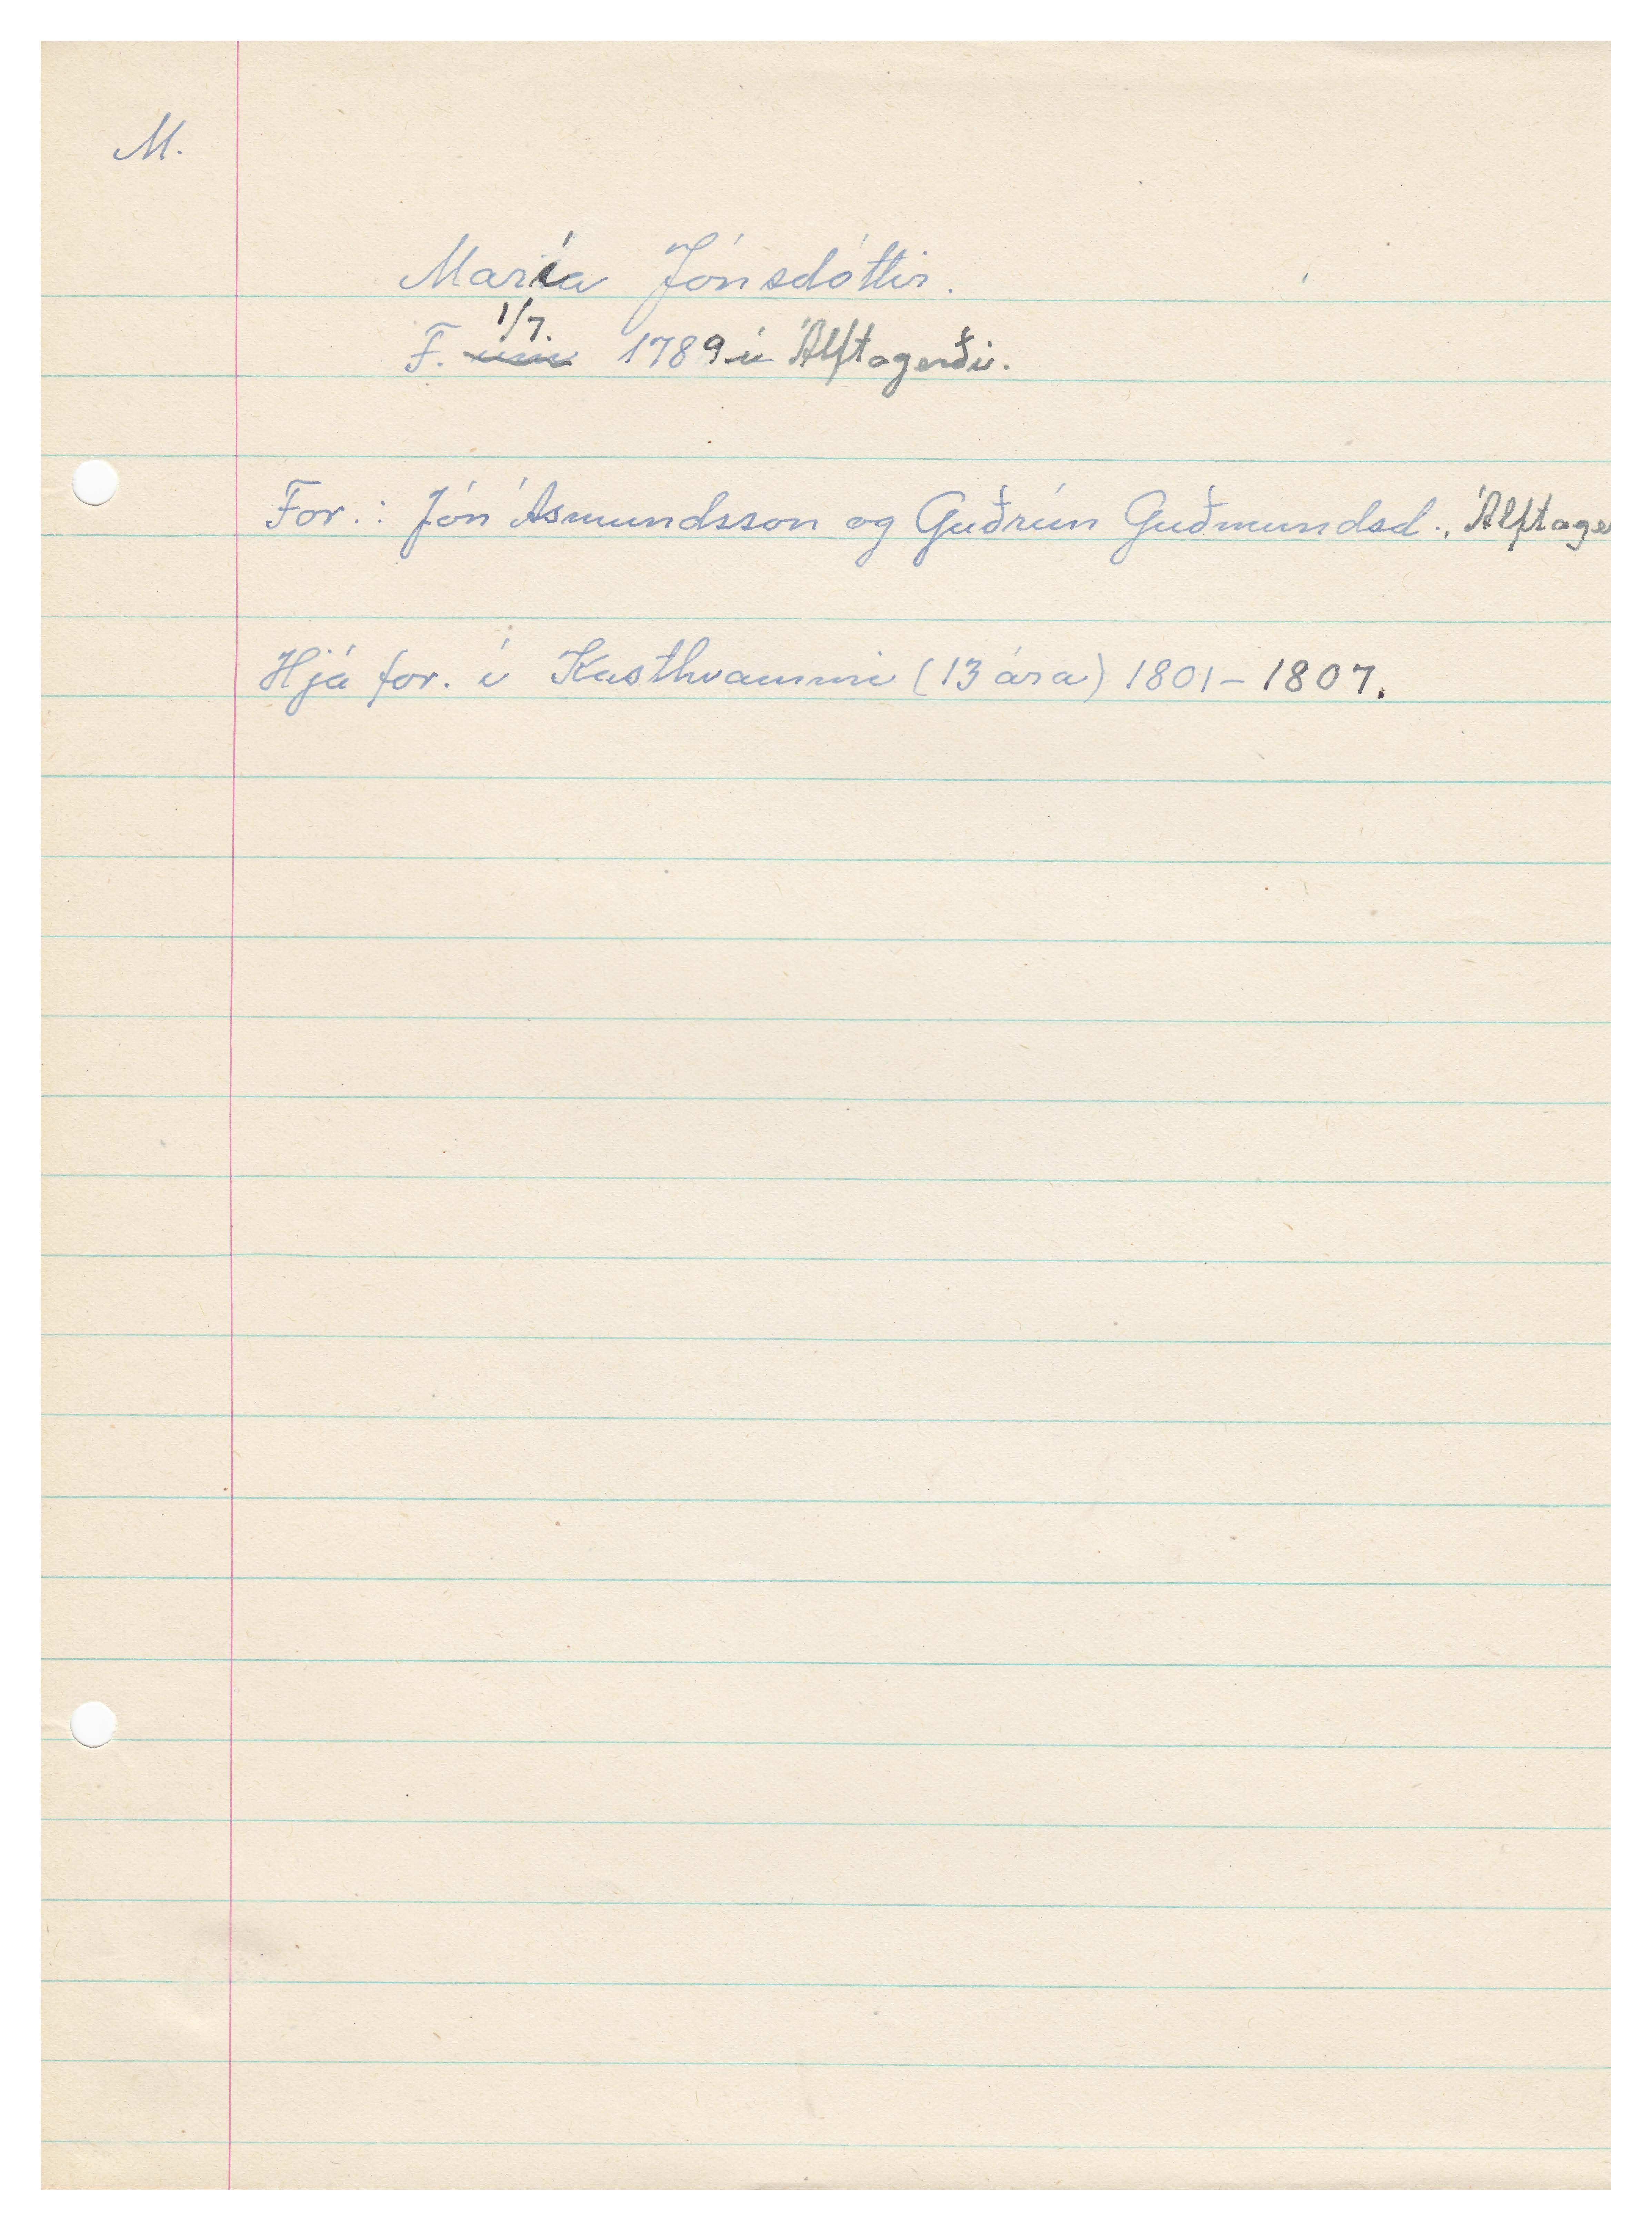 M.
María Jónsdóttir.
1/7.
F. um 1789 í Álftagerði.
For.: Jón Ásmundsson og Guðrún Guðmundsd., Álftage
Hjá for. í Kasthvammi (13 ára) 1801-1807.